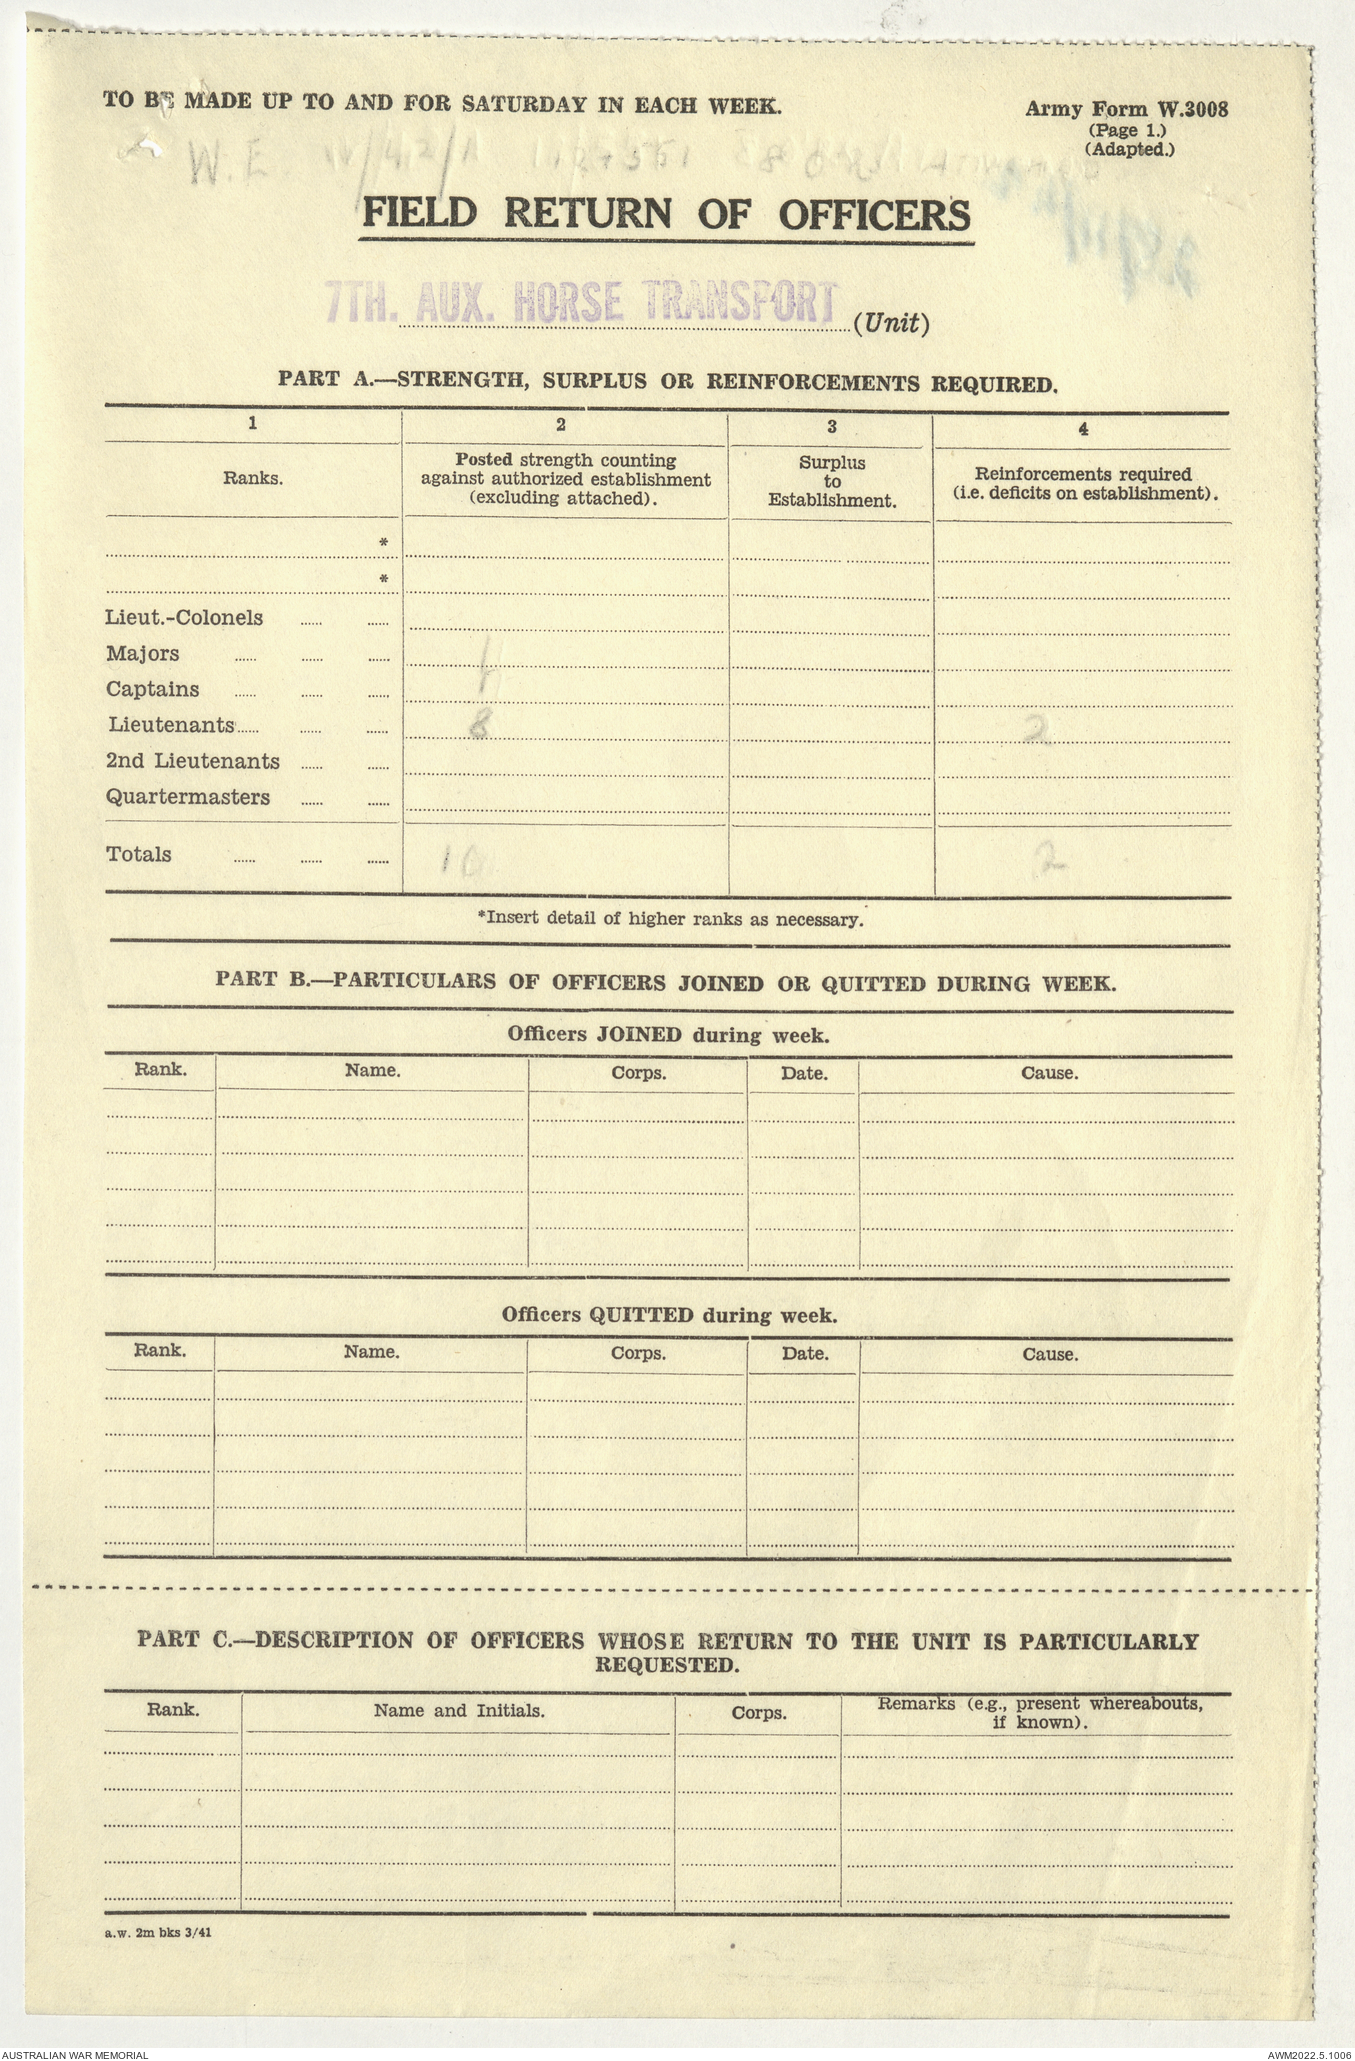 TO BE MADE UP TO AND FOR SATURDAY IN EACH WEEK.
Army Form W.3008
(Page 1.)
(Adapted.)
W.E.
FIELD RETURN OF OFFICERS
7TH. AUX. HORSE TRANSPORT (Unit)
PART A.—STRENGTH, SURPLUS OR REINFORCEMENTS REQUIRED.
1 2 3 4
Ranks.
Posted strength counting
against authorized establishment
(excluding attached).
Surplus
to
Establishment.
Reinforcements required
(i.e. deficits on establishment).
*
*
Lieut.-Colonels
Majors
Captains
Lieutenants 8 2
2nd Lieutenants
Quartermasters
Totals 10 2
*Insert detail of higher ranks as necessary.
PART B.—PARTICULARS OF OFFICERS JOINED OR QUITTED DURING WEEK.
Officers JOINED during week.
Rank. Name. Corps. Date. Cause.
Officers QUITTED during week.
Rank. Name. Corps. Date. Cause.
PART C.—DESCRIPTION OF OFFICERS WHOSE RETURN TO THE UNIT IS PARTICULARLY
REQUESTED.
Rank. Name and Initials. Corps.
Remarks (e.g., present whereabouts,
if known).
a.w. 2m bks 3/41
AUSTRALIAN WAR MEMORIAL
AWM2022.5.1006